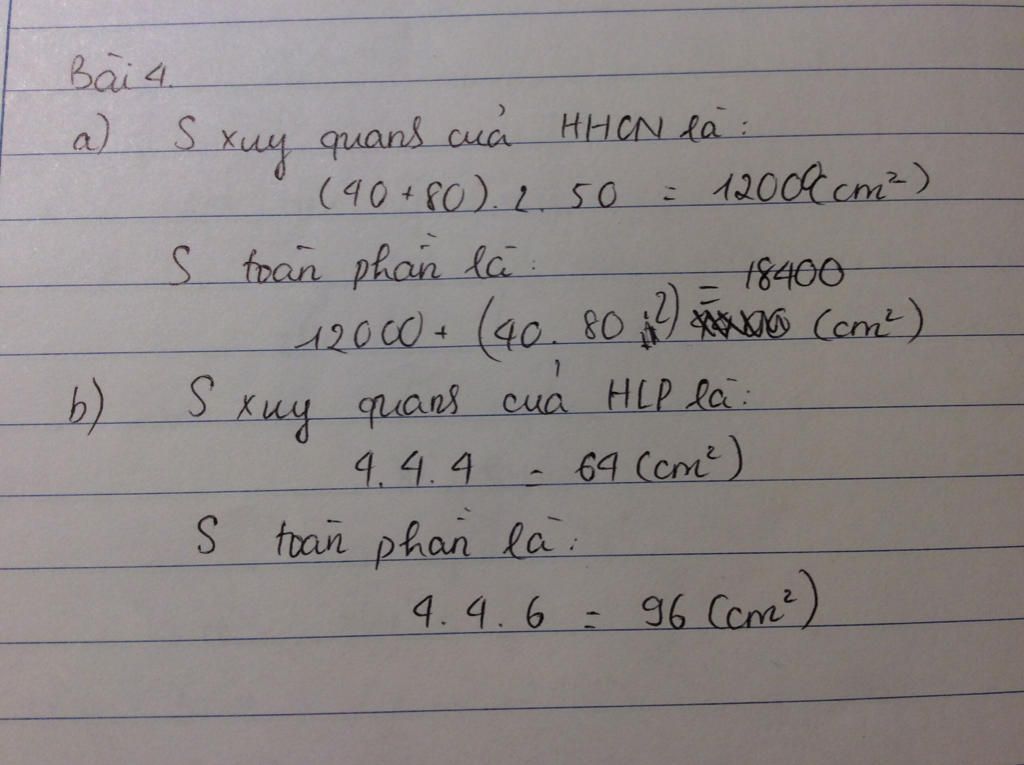 Bài 4.
a) S xuy quans cuả HHCN là:
(40+80).2.50 = 12000(cm²)
S toàn phần là:
12000 + (40.80.2) = 18400 (cm²)
b) S xuy quans cuả HLP là:
4.4.4 = 64 (cm²)
S toàn phần là:
4.4.6 = 96 (cm²)